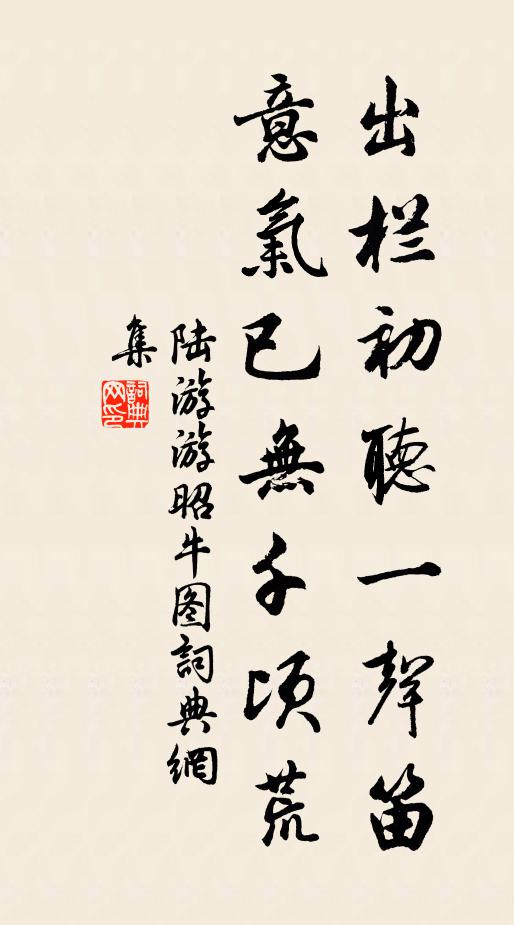 出栏初聽一聲笛
意氣已無千頃荒
陆游游昭牛图詞典網
集
詞典网印